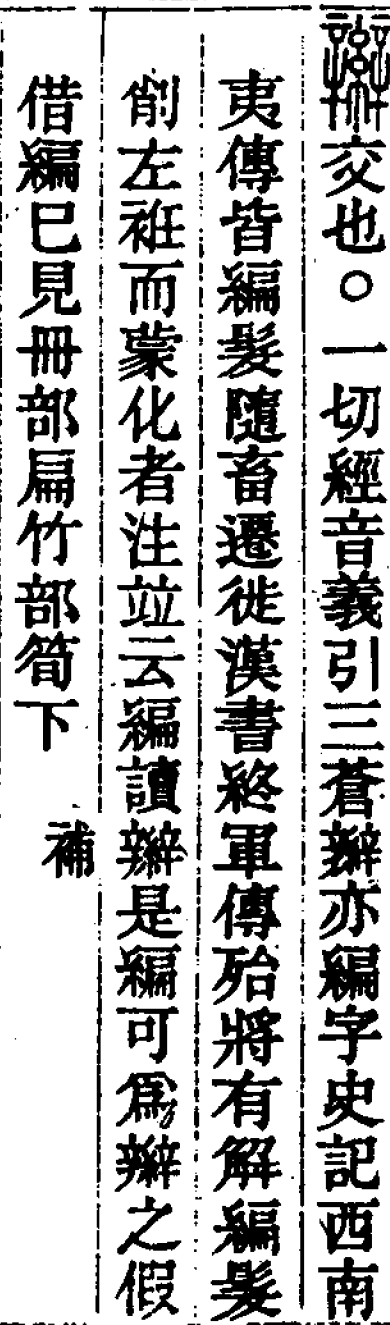 辮交也○一切經音義引三蒼辮亦編字史記西南
夷傳皆編髮隨畜遷徙漢書終軍傳殆將有解編髮
削左衽而蒙化者注竝云編讀辮是編可爲辮之假
借編巳見冊部扁竹部筍下 補